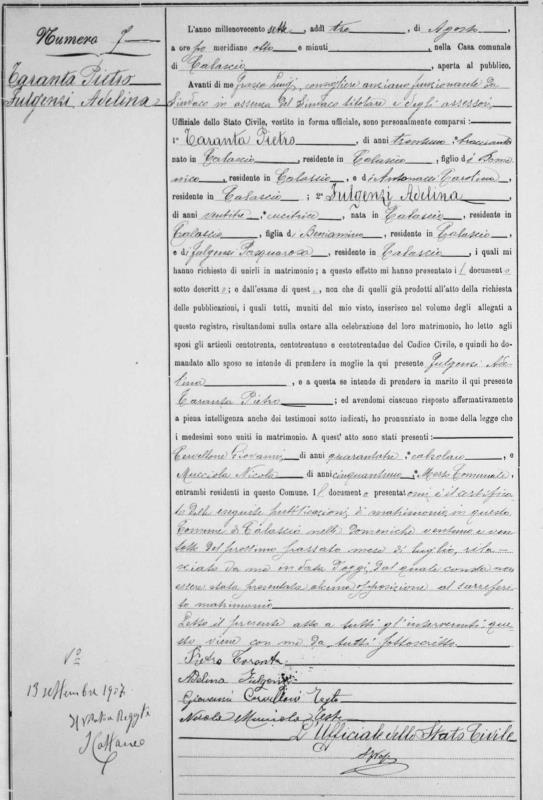 Numero 7
Taranta Pietro
Fulgenzi Adelina
L'anno millenovecento sette, addì tre, di Agosto,
a ore po meridiane otto e minuti , nella Casa comunale
di Calascio , aperta al pubblico.
Avanti di me Grasso Luigi, consigliere anziano funzionante da
Sindaco in assenza del Sindaco titolare e degli assessori
Uffiziale dello Stato Civile, vestito in forma ufficiale, sono personalmente comparsi:
1° Taranta Pietro , di anni trentuno,
nato in Calascio , residente in Calascio , figlio di Dome-
nico , residente in Calascio , e di Antonacci Carolina ,
residente in Calascio ; 2° Fulgenzi Adelina ,
di anni ventitre, cucitrice , nata in Calascio , residente in
Calascio , figlia di Beniamino , residente in Calascio ,
e di Fulgenzi Pasquarosa , residente in Calascio , i quali mi
hanno richiesto di unirli in matrimonio; a questo effetto mi hanno presentato il document o
sotto descritto; e dall'esame di quest , non che di quelli già prodotti all'atto della richiesta
delle pubblicazioni, i quali tutti, muniti del mio visto, inserisco nel volume degli allegati a
questo registro, risultandomi nulla ostare alla celebrazione del loro matrimonio, ho letto agli
sposi gli articoli centotrenta, centotrentuno e centotrentadue del Codice Civile, e quindi ho do-
mandato allo sposo se intende di prendere in moglie la qui presente Fulgenzi Ade-
lina , e a questa se intende di prendere in marito il qui presente
Taranta Pietro ; ed avendomi ciascuno risposto affermativamente
a piena intelligenza anche dei testimoni sotto indicati, ho pronunziato in nome della legge che
i medesimi sono uniti in matrimonio. A quest' atto sono stati presenti:
Cervellone Giovanni, di anni quarantatre, calzolaio , e
Mucciola Nicola di anni cinquantuno, Messo Comunale ,
entrambi residenti in questo Comune. Il document o presentatomi è il certifica-
to delle eseguite pubblicazioni di matrimonio in questo
Comune di Calascio nelle Domeniche ventuno e ven-
totto del prossimo passato mese di luglio, rila-
sciato da me in data d'oggi, dal quale consta non
essere stata presentata alcuna opposizione al surrefe-
to matrimonio
Letto il presente atto a tutti gl'intervenuti que-
sto viene con me da tutti sottoscritto
Pietro Taranta
Adelina Fulgenzi
Giovanni Cervelloni Teste
Nicola Mucciola Teste
L'Uffiziale dello Stato Civile
V°
13 settembre 1907
Cattaneo